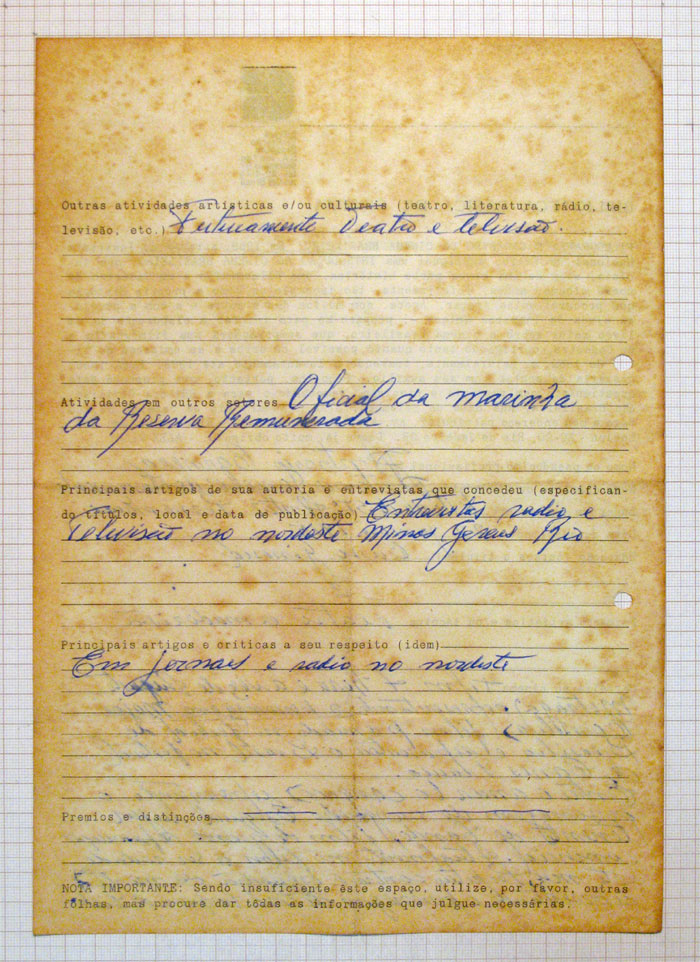 Outras atividades artísticas e/ou culturais (teatro, literatura, rádio, te-
levisão, etc.) Futuramente Teatro e televisão.
Atividades em outros setores Oficial da marinha
da Reserva Remunerada
Principais artigos de sua autoria e entrevistas que concedeu (especifican-
do títulos, local e data de publicação) Entrevistas radio e
Televisão no nordeste Minas Gerais Rio
Principais artigos e críticas a seu respeito (idem)
Em jornaes e radio no nordeste
Premios e distinções
NOTA IMPORTANTE: Sendo insuficiente êste espaço, utilize, por favor, outras
folhas, mas procure dar tôdas as informações que julgue necessárias.